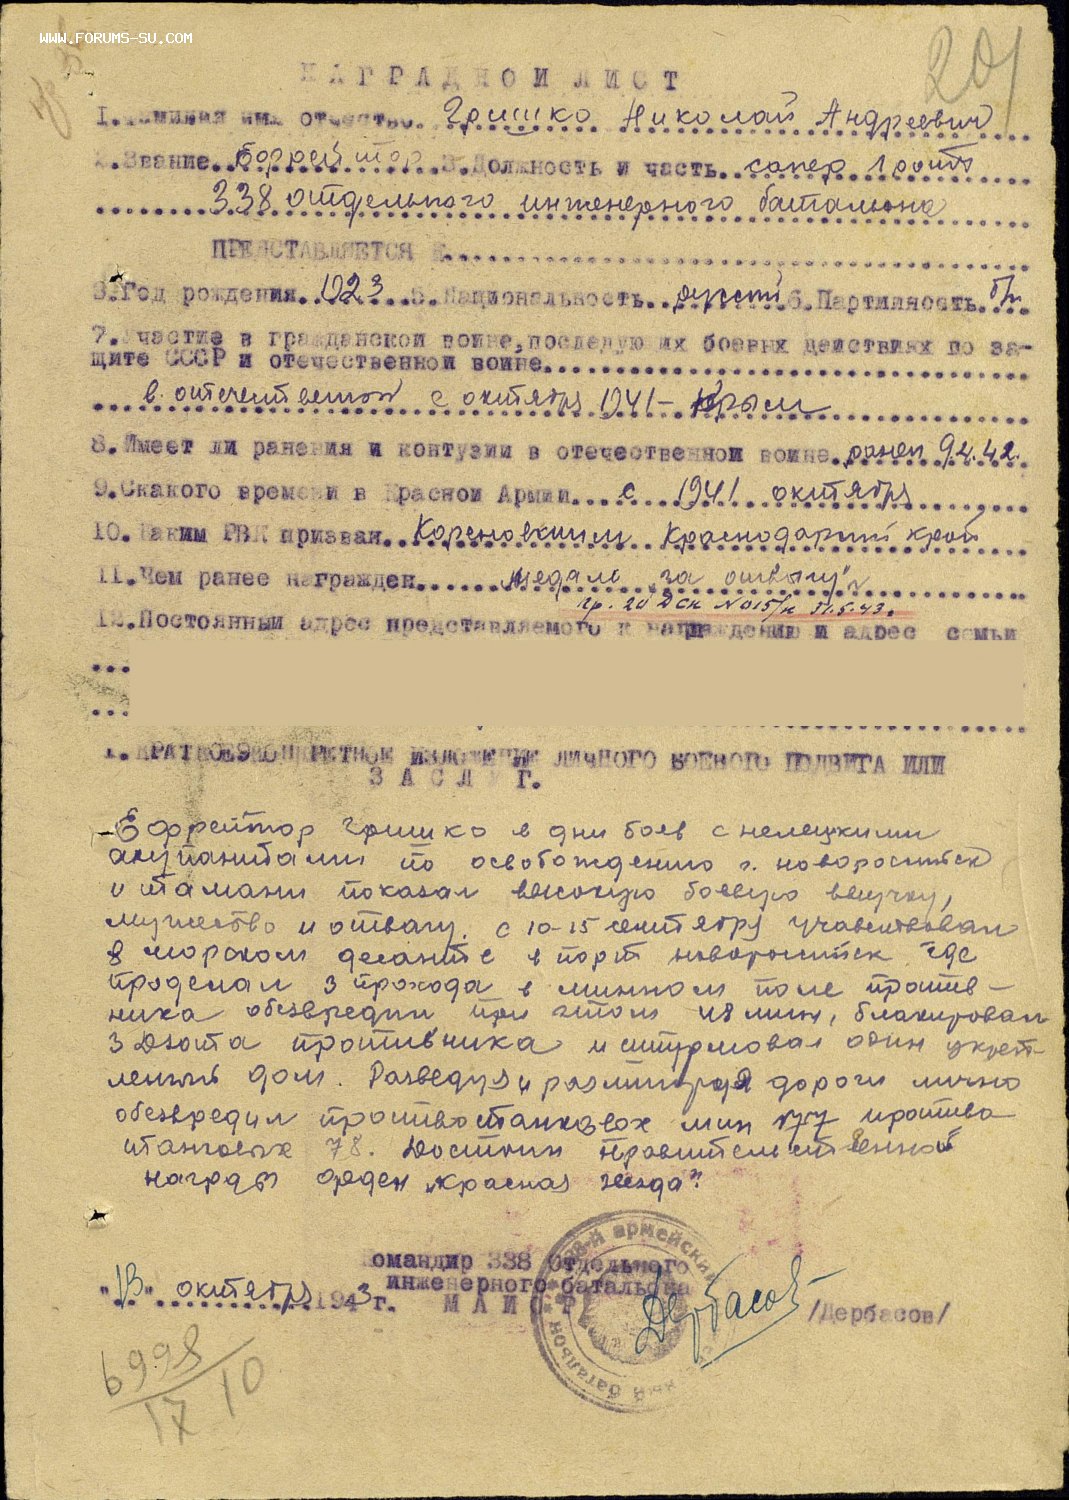 WWW.FORUMS-SU.COM
201
НАГРАДНОЙ ЛИСТ
1.Фамилия имя отчество. Гришко Николай Андреевич
2.Звание. Еффрейтор 3.Должность и часть. сапер 1 роты
338 отдельного инженерного батальона
ПРЕДСТАВЛЯЕТСЯ К
3.Год рождения. 1923 5.Национальность. русский 6.Партийность. б/п
7.Участие в гражданской войне,последующих боевых действиях по за-
щите СССР и отечественной войне
в отечественной с октября 1941 - Крым
8.Имеет ли ранения и контузии в отечественной войне. ранен 9.4.42.
9.Скакого времени в Красной Армии. с 1941 октября
10.Каким РВК призван. Кореновским Краснодарский край
11.Чем ранее награжден. медаль "за отвагу"
пр. 20 ДСК N 015/н 31.5.43.
12.Постоянный адрес представляемого к награждению и адрес семьи
1.КРАТКОЕ КОНКРЕТНОЕ ИЗЛОЖЕНИЕ ЛИЧНОГО БОЕВОГО ПОДВИГА ИЛИ
ЗАСЛУГ.
Ефрейтор Гришко в дни боев с немецкими
акупантами по освобождению г. новоросийск
и тамани показал высокую боевую выучку,
мужество и отвагу. с 10-15 сентября учавствовал
в морском десанте в порт новоросийск где
проделал 3 прохода в минном поле против-
ника обезвредил при этом 48 мин, блакировал
3 Дзота противника и штурмовал один укреп-
ленный дом. Разведуя и разминируя дороги лично
обезвредил противотанковых мин 177 противо
78. Достоин правительственной
награды орден "красная звезда".
Командир 338 Отдельного
инженерного батальона
"13" октября 1943 г. МАЙОР Дербасов /Дербасов/
армейский
батальон
6998
17 10